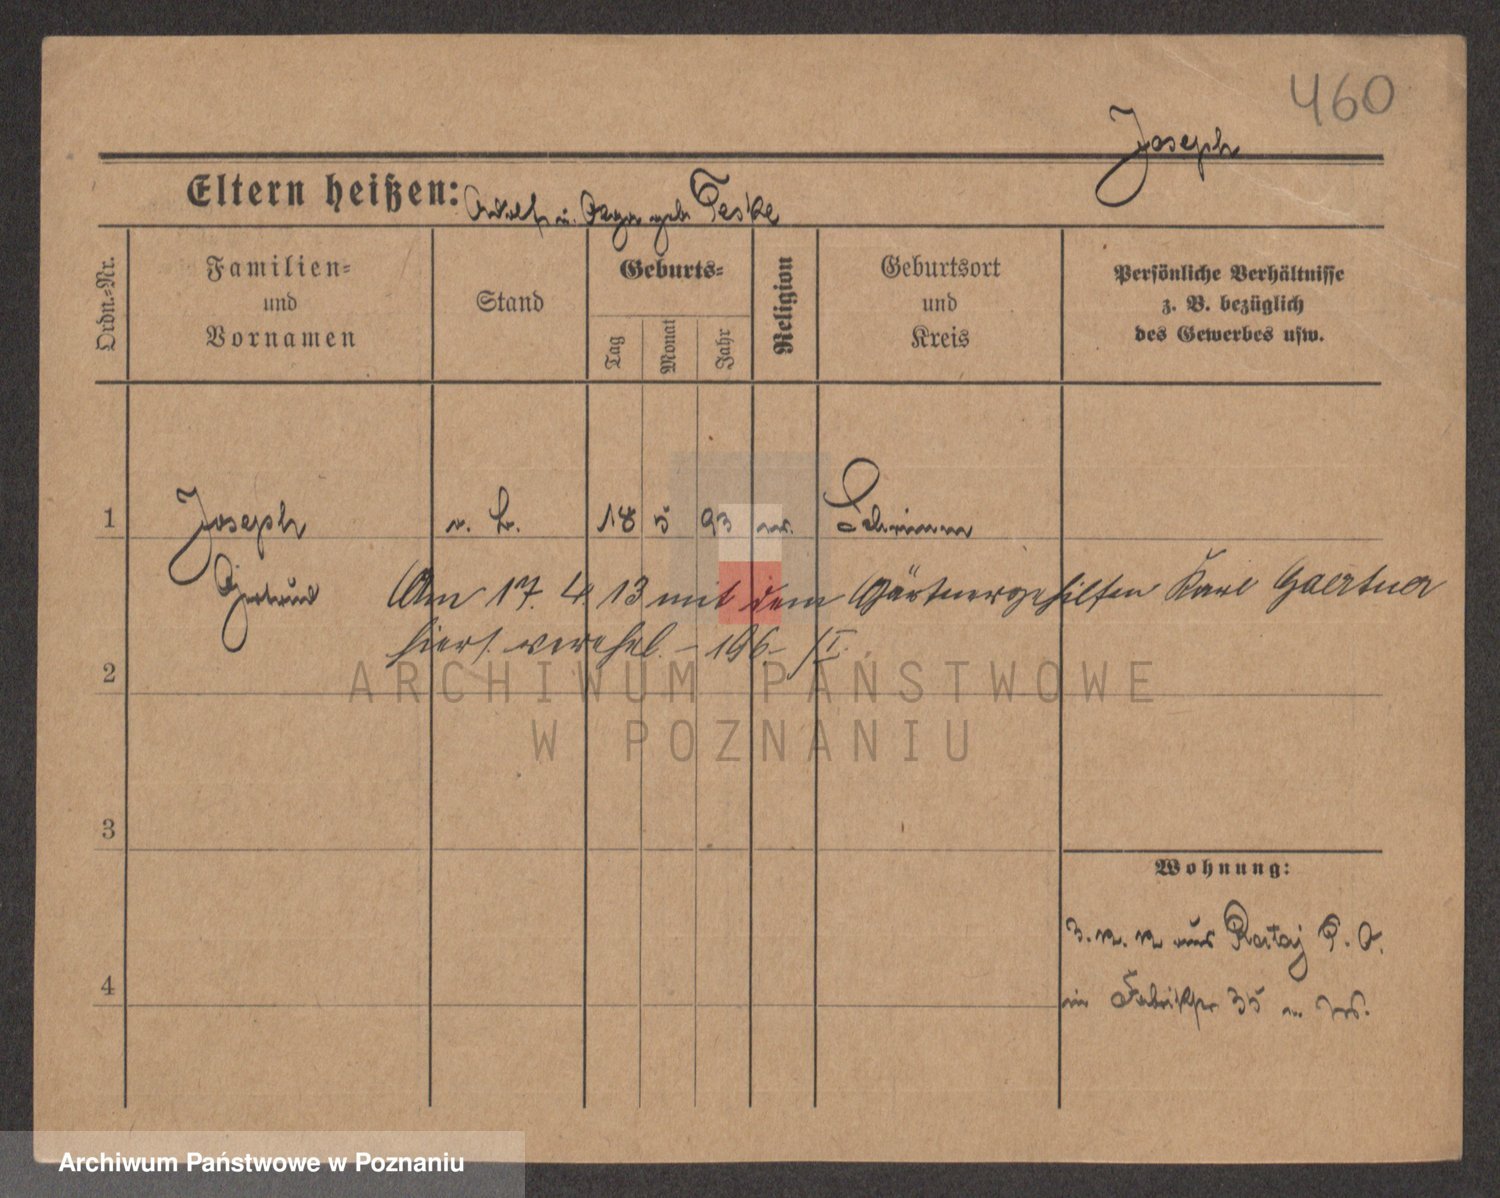 460
Joseph
Eltern heißen: Adolf u. geb Teske
Ordn.-Nr.
Familien-
und
Vornamen
Stand
Geburts-
Tag
Monat
Jahr
Religion
Geburtsort
und
Kreis
Persönliche Verhältnisse
z. B. bezüglich
des Gewerbes usw.
1 Joseph 18 5 93 Schrimm
Gertrud Am 17. 4 13 mit dem Gärtnergehilfen Karl Gaertner
hiers. verehel. – 196. – /I.
2
3
4
Wohnung:
aus Rataj P. O.
in Fabrikstr 35
ARCHIWUM PAŃSTWOWE
W POZNANIU
Archiwum Państwowe w Poznaniu